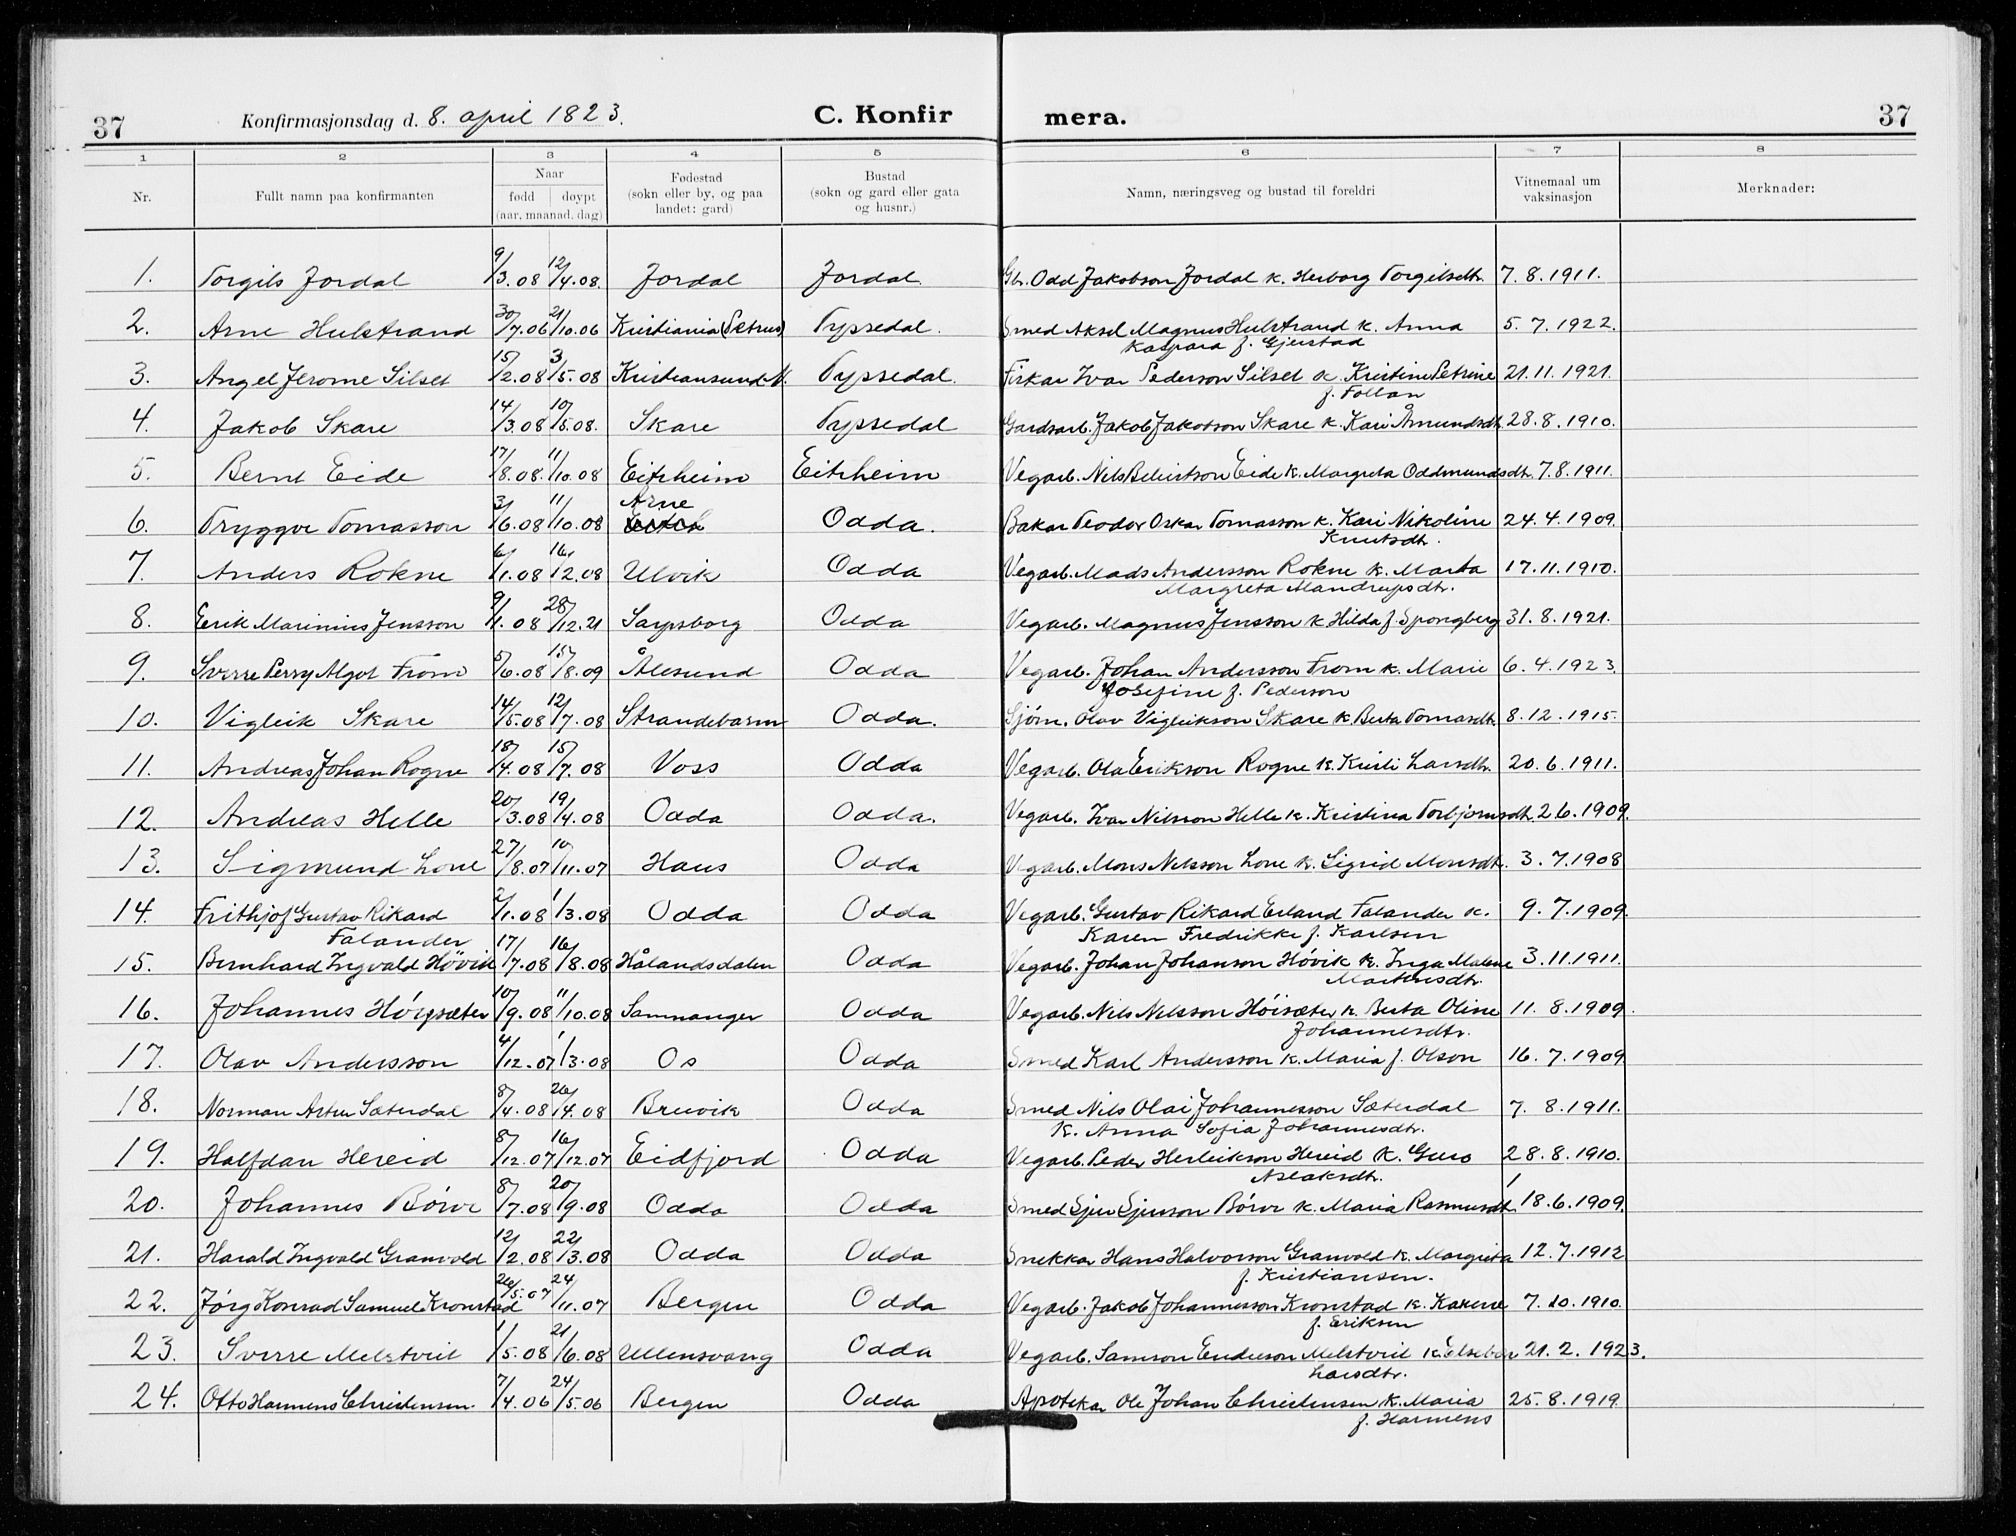 37 Konfirmasjonsdag d. 8. april 1823. C. Konfir mera. 37
1 2 3 4 5 6 7 8
Nr. Fullt namn paa konfirmanten Naar fødd døypt (aar, maanad, dag) Fødestad (sokn eller by, og paa landet: gard) Bustad (sokn og gard eller gata og husnr.) Namn, næringsveg og bustad til foreldri Vitnemaal um vaksinasjon Merknader:
1. Torgils Jordal 9/3.08 12/4.08. Jordal Jordal Gbr. Odd Jakobson Jordal k. Herborg Torgilsdtr. 7.8.1911.
2. Arne Hulstrand 30/7.06 21/10.06 Kristiania (Petrus) Tyssedal. Smed Aksel Magnus Hulstrand k. Anna 5.7.1922.
Kaspara f. Gjerstad
3. Angel Jerome Silset 15/2.08 3/5.08 Kristiansund N. Tyssedal. Fiskar Ivar Pederson Silset k. Kristine Petrine 21.11.1921.
f. Follan
4. Jakob Skare 14/3.08 10/5.08. Skare Tyssedal Gardsarb. Jakob Jakobson Skare k. Kari Åmundsdtr. 28.8.1910.
5. Bernt Eide 17/8.08. 11/10.08 Eitrheim Eitrheim Vegarb. Nils Berintson Eide k. Margreta Oddmundsdtr. 7.8.1911.
6. Tryggve Tomasson 3/6.08 11/10.08 Arne Odda. Bakar Teodor Oskar Tomasson k. Kari Nikoline 24.4.1909.
Knutsdtr.
7. Anders Rokne 6/1.08 16/2.08 Ulvik Odda Vegarb. Mads Andersson Rokne k. Marta 17.11.1910.
Margreta Mandrupsdtr.
8. Erik Marinius Jensson 9/1.08 28/12.21 Sarpsborg Odda Vegarb. Magnus Jensson k. Hilda f. Spongberg 31.8.1921.
9. Sverre Perry Algot From 5/6.08 15/8.09 Ålesund Odda Vegarb. Johan Andersson From k. Marie 6.4.1923
Josefine f. Pederson
10. Vigleik Skare 14/5.08 12/7.08 Strandebarm Odda. Sjøm. Olav Vigleikson Skare k. Berta Tomasdtr. 8.12.1915.
11. Andreas Johan Rogne 18/4.08 15/7.08 Voss Odda Vegarb. Ola Erikson Rogne k. Kristi Larsdtr. 20.6.1911.
12. Andreas Helle 20/3.08 19/4.08 Odda Odda. Vegarb. Ivar Nilsson Helle k. Kristina Torbjørnsdtr. 2.6.1909.
13. Sigmund Lone 27/8.07 10/11.07 Haus Odda Vegarb. Mons Nelsson Lone k. Sigrid Monsdtr. 3.7.1908
14. Frithjof Gustav Rikard 2/1.08 1/3.08 Odda Odda Vegarb. Gustav Rikard Erland Falander k. 9.7.1909.
Falander Karen Fredrikke f. Karlsen
15. Bernhard Ingvald Høvik 17/7.08 16/8.08 Hålandsdalen Odda Vegarb. Johan Johanson Høvik k. Inga Malene 3.11.1911.
Martinsdtr.
16. Johannes Høysæter 10/9.08 11/10.08 Samnanger Odda Vegarb. Nils Nelsson Høisæter k. Berta Oline 11.8.1909.
Johannesdtr.
17. Olav Andersson 4/12.07 1/3.08 Os Odda Smed Karl Andersson k. Maria f. Olson 16.7.1909
18. Norman Artur Sæterdal 8/4.08 26/4.08 Brevik Odda Smed Nils Olai Johannesson Sæterdal 7.8.1911.
k. Anna Sofia Johannesdtr.
19. Halfdan Hereid 8/12.07 16/12.07 Eidfjord Odda Vegarb. Peder Herleikson Hereid k. Guro 28.8.1910.
Aslaksdtr.
20. Johannes Børve 8/7.08 20/9.08 Odda Odda Smed Sjur Sjurson Børve k. Maria Rasmusdtr. 18.6.1909.
21. Harald Ingvald Granvold 12/2.08 22/3.08 Odda Odda Snikkar Hans Halvorson Granvold k. Margreta 12.7.1912
f. Kristiansen.
22. Jørg Konrad Samuel Kronstad 26/5.07 24/11.07 Bergen Odda Vegarb. Jakob Johannesson Kronstad k. Karene 7.10.1910.
f. Eriksen
23. Sverre Melstveit 1/5.08 21/6.08 Ullensvang Odda Vegarb. Samson Enderson Melstveit k. Elsebor 21.2.1923.
Larsdtr.
24. Otto Harmens Christensen. 7/4.06 24/5.06 Bergen Odda Apotekar Ole Johan Christensen k. Maria 25.8.1919.
f. Harmens